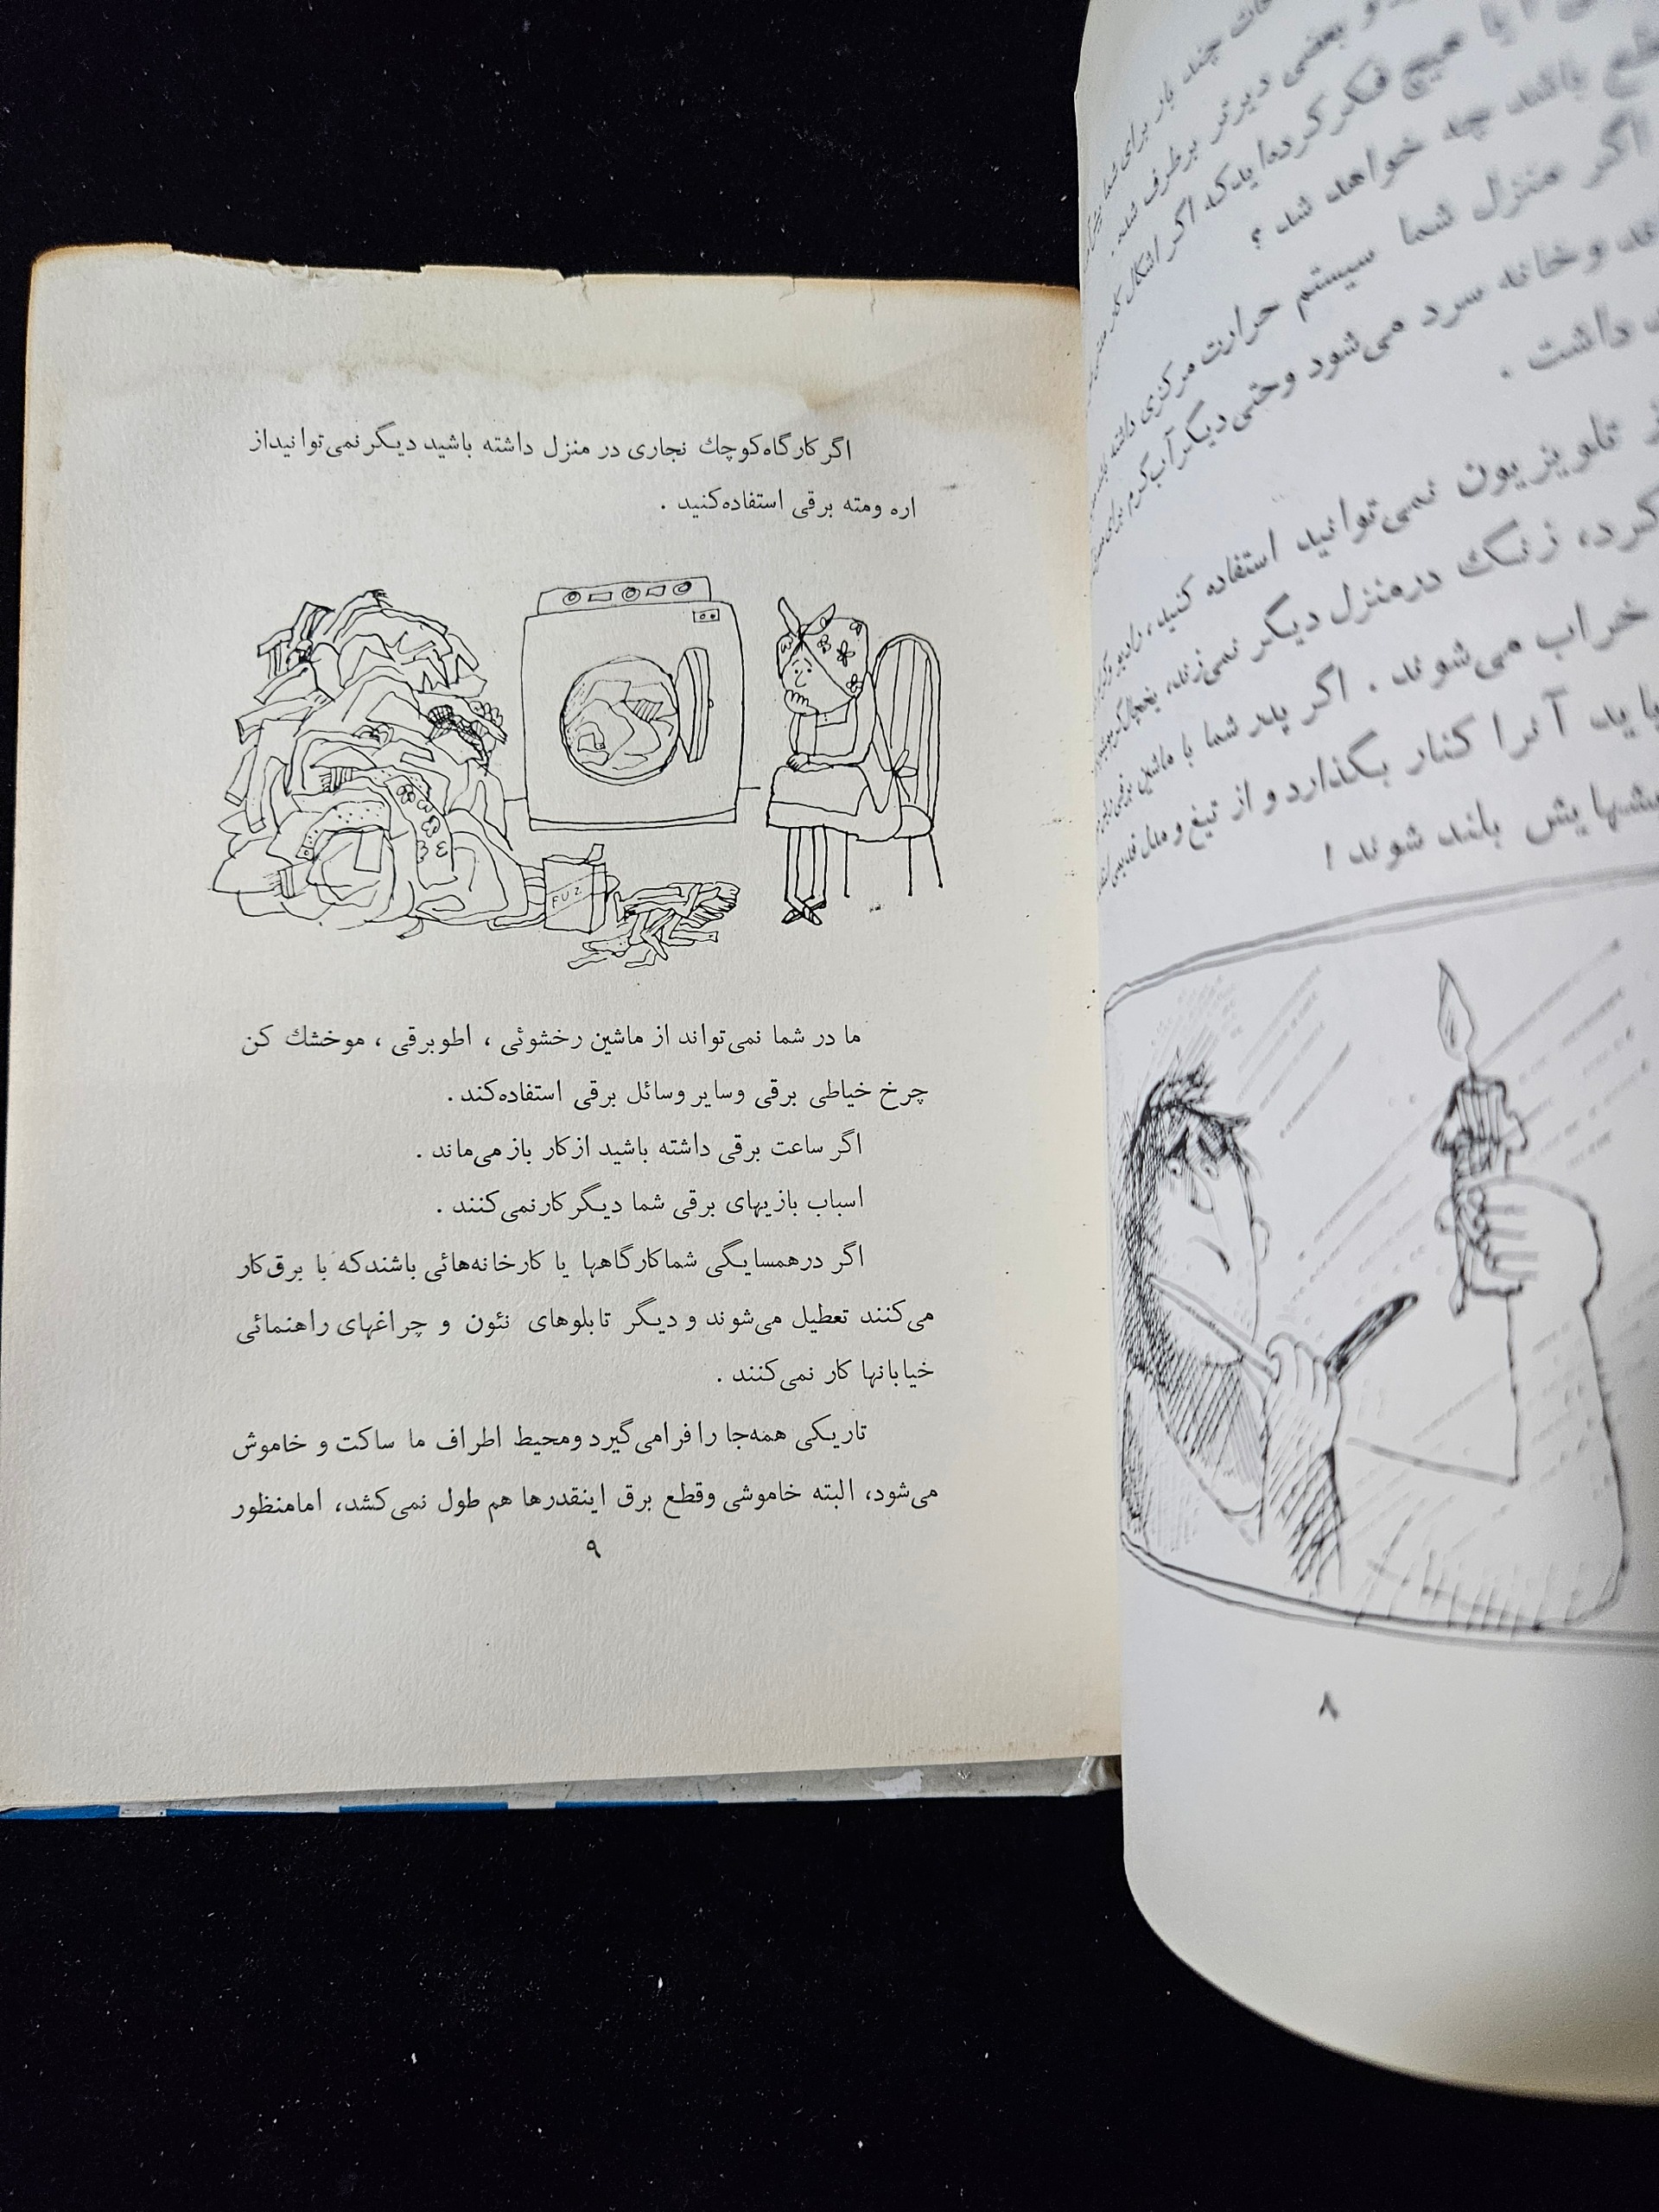 چند بار برای شما
و بعضی دیرتر برطرف شده .
آیا هیچ فکر کرده‌اید که اگر اشکال کار
باشد چه خواهد شد ؟
اگر منزل شما سیستم حرارت مرکزی داشته باشد
و خانه سرد می‌شود و حتی دیگر آب گرم برای
داشت .
تلویزیون نمی‌توانید استفاده کنید ، رادیو
کرد، زنگ در منزل دیگر نمی‌زند، یخچال
خراب می‌شوند . اگر پدر شما با ماشین برقی
باید آنرا کنار بگذارد و از تیغ و مدل قدیمی
بلند شوند !
۸
اگر کارگاه کوچك نجاری در منزل داشته باشید دیگر نمی‌توانید از
اره و مته برقی استفاده کنید .
FUZ
مادر شما نمی‌تواند از ماشین رخشوئی ، اطو برقی ، موخشك کن
چرخ خیاطی برقی و سایر وسائل برقی استفاده کند .
اگر ساعت برقی داشته باشید از کار باز می‌ماند .
اسباب بازیهای برقی شما دیگر کار نمی‌کنند .
اگر در همسایگی شما کارگاهها یا کارخانه‌هائی باشند که با برق کار
می‌کنند تعطیل می‌شوند و دیگر تابلوهای نئون و چراغهای راهنمائی
خیابانها کار نمی‌کنند .
تاریکی همه‌جا را فرا می‌گیرد و محیط اطراف ما ساکت و خاموش
می‌شود، البته خاموشی و قطع برق اینقدرها هم طول نمی‌کشد، اما منظور
۹